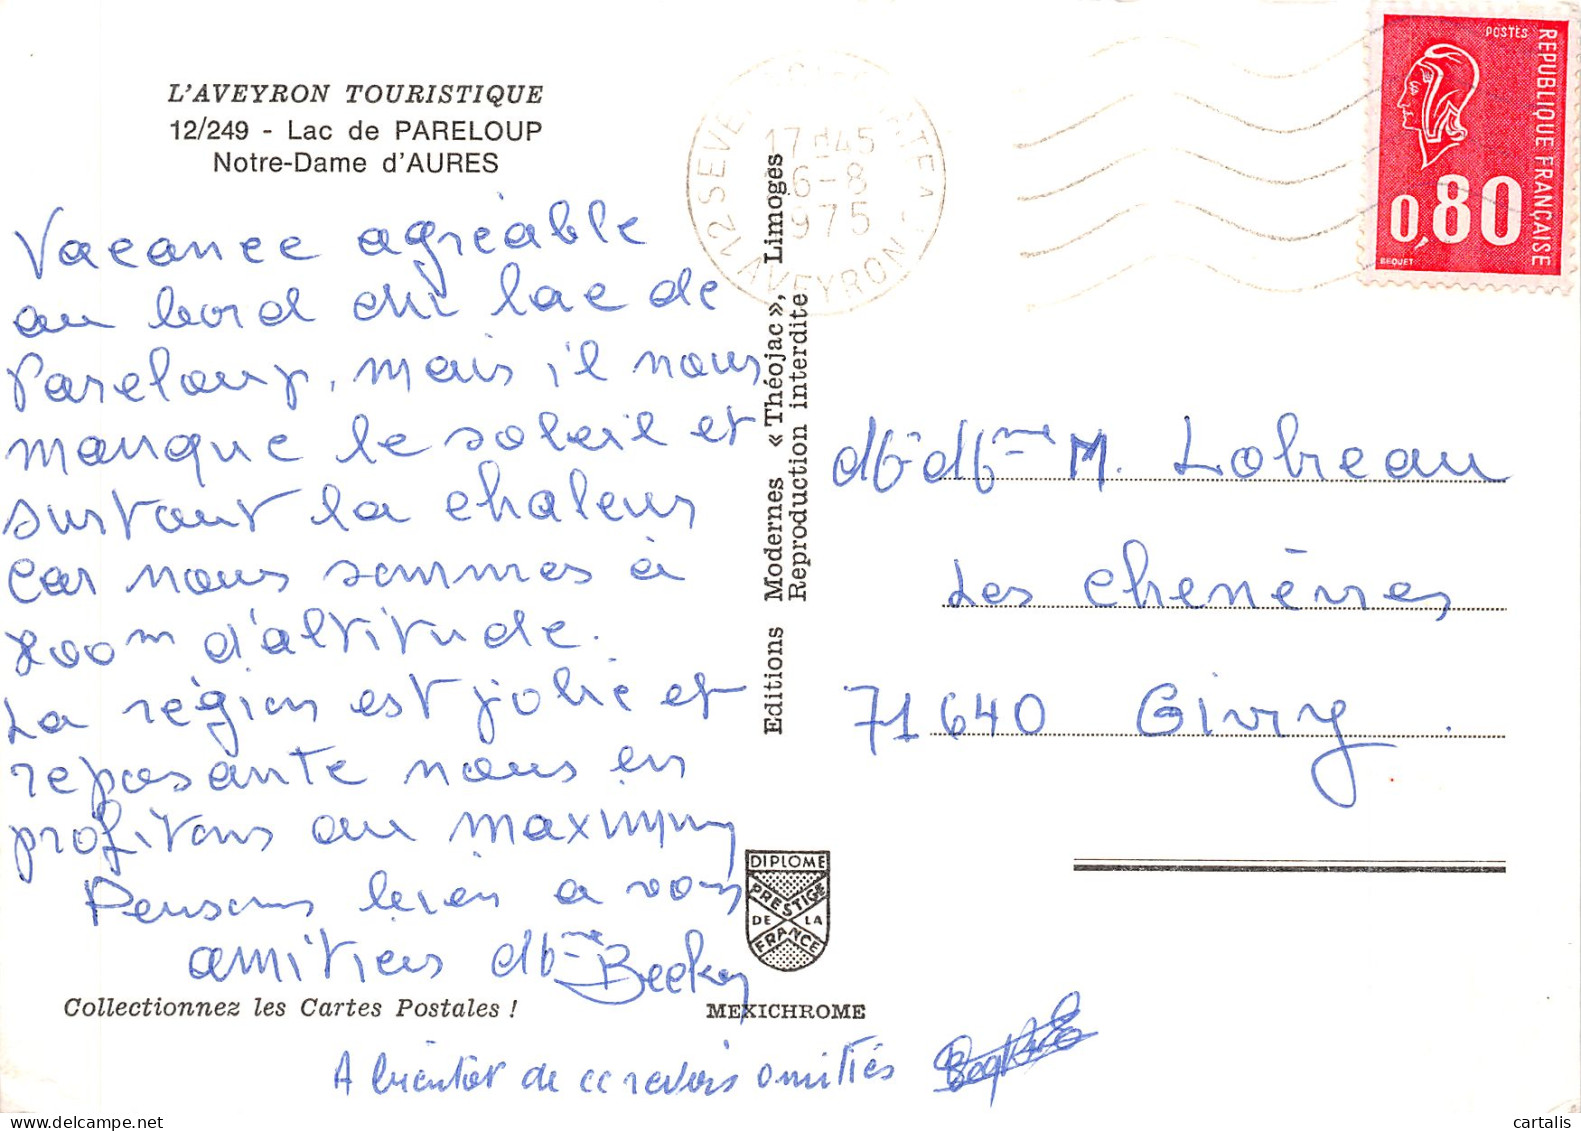 L'AVEYRON TOURISTIQUE
12/249 - Lac de PARELOUP
Notre-Dame d'AURES
Vacance agréable
au bord du lac de
Pareloup, mais il nous
manque le soleil et
surtout la chaleur
car nous sommes à
800m d'altitude.
La région est jolie et
reposante nous en
profitons au maximum
Pensons bien a vous
amitiers Mme Beckey
Collectionnez les Cartes Postales !
MEXICHROME
A bientôt de ce revoir amitiés
Editions Modernes « Théojac », Limoges
Reproduction interdite
DIPLOME
PRESTIGE
DE LA
FRANCE
12 SEVE
17H45
6-8
1975
AVEYRON
REPUBLIQUE FRANÇAISE
POSTES
0,80
BEQUET
M. Mme M. Lobreau
Les Chenèvres
71640 Givry.
cartalis